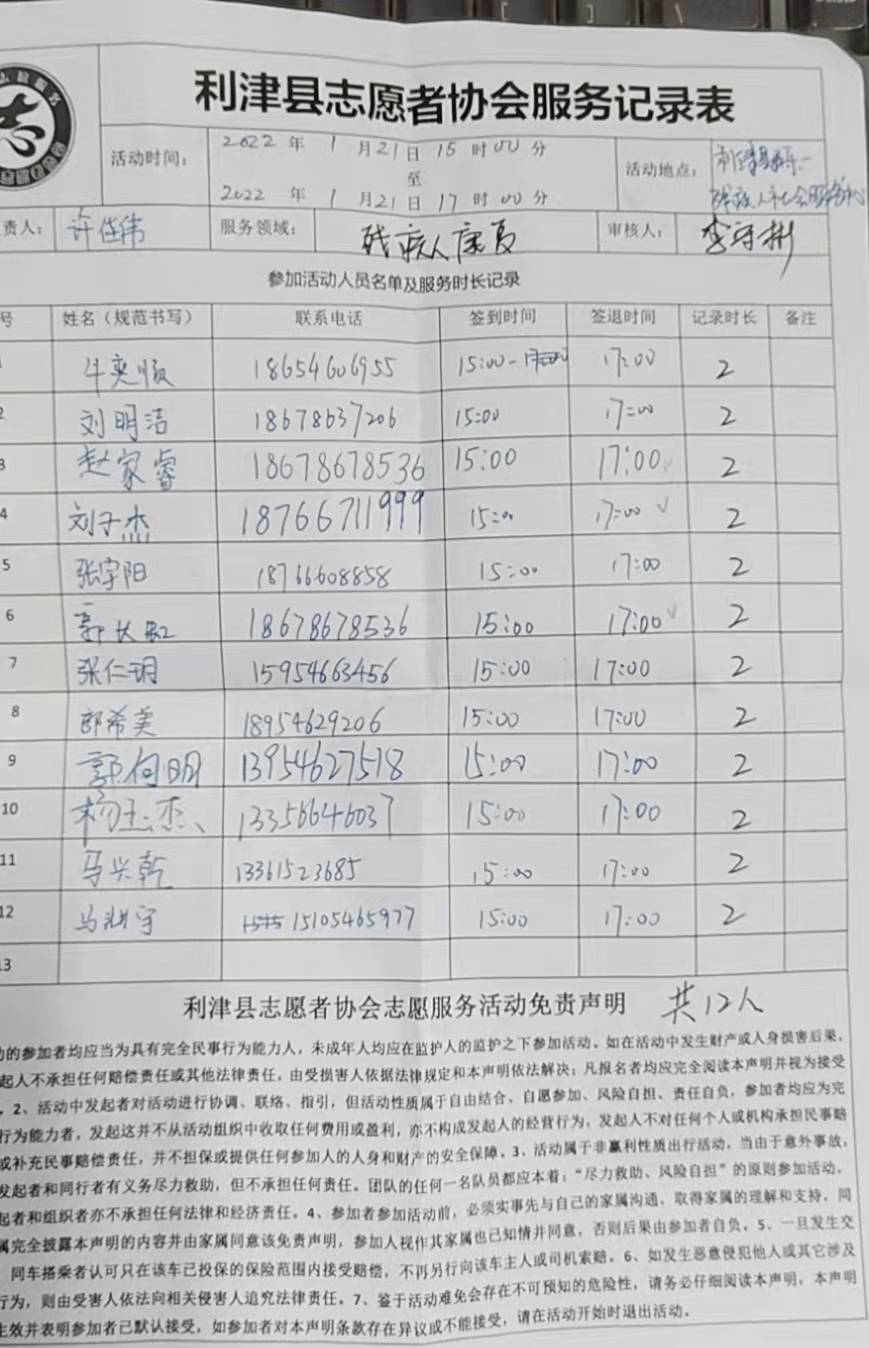 利津县志愿者协会服务记录表
活动时间： 2022 年 1 月 21 日 15 时 00 分
至
2022 年 1 月 21 日 17 时 00 分
活动地点：
责人： 许佳伟 服务领域： 残疾人康复 审核人： 李守彬
参加活动人员名单及服务时长记录
号 姓名（规范书写） 联系电话 签到时间 签退时间 记录时长 备注
牛奕顺 18654606955 15:00 17:00 2
2 刘明洁 18678637206 15:00 17:00 2
3 赵家睿 18678678536 15:00 17:00 2
4 刘子杰 18766711999 15:00 17:00 √ 2
5 张宇阳 18766608858 15:00 17:00 2
6 郭长虹 18678678536 15:00 17:00 √ 2
7 张仁玥 15954663456 15:00 17:00 2
8 郎希美 18954629206 15:00 17:00 2
9 郭向明 13954627518 15:00 17:00 2
10 杨玉杰 13356646037 15:00 17:00 2
11 马兴乾 13361523685 15:00 17:00 2
12 15105465977 15:00 17:00 2
13
利津县志愿者协会志愿服务活动免责声明 共12人
动的参加者均应当为具有完全民事行为能力人，未成年人均应在监护人的监护之下参加活动。如在活动中发生财产或人身损害后果，
起人不承担任何赔偿责任或其他法律责任，由受损害人依据法律规定和本声明依法解决；凡报名者均应完全阅读本声明并视为接受
。2、活动中发起者对活动进行协调、联络、指引，但活动性质属于自由结合、自愿参加、风险自担、责任自负，参加者均应为完
行为能力者，发起这并不从活动组织中收取任何费用或盈利，亦不构成发起人的经营行为，发起人不对任何个人或机构承担民事赔
或补充民事赔偿责任，并不担保或提供任何参加人的人身和财产的安全保障。3、活动属于非赢利性质出行活动，当由于意外事故，
发起者和同行者有义务尽力救助，但不承担任何责任。团队的任何一名队员都应本着：“尽力救助、风险自担”的原则参加活动。
起者和组织者亦不承担任何法律和经济责任。4、参加者参加活动前，必须实事先与自己的家属沟通，取得家属的理解和支持，同
属完全披露本声明的内容并由家属同意该免责声明，参加人视作其家属也已知情并同意，否则后果由参加者自负。5、一旦发生交
同车搭乘者认可只在该车已投保的保险范围内接受赔偿，不再另行向该车主人或司机索赔。6、如发生恶意侵犯他人或其它涉及
行为，则由受害人依法向相关侵害人追究法律责任。7、鉴于活动难免会存在不可预知的危险性，请务必仔细阅读本声明，本声明
生效并表明参加者已默认接受，如参加者对本声明条款存在异议或不能接受，请在活动开始时退出活动。